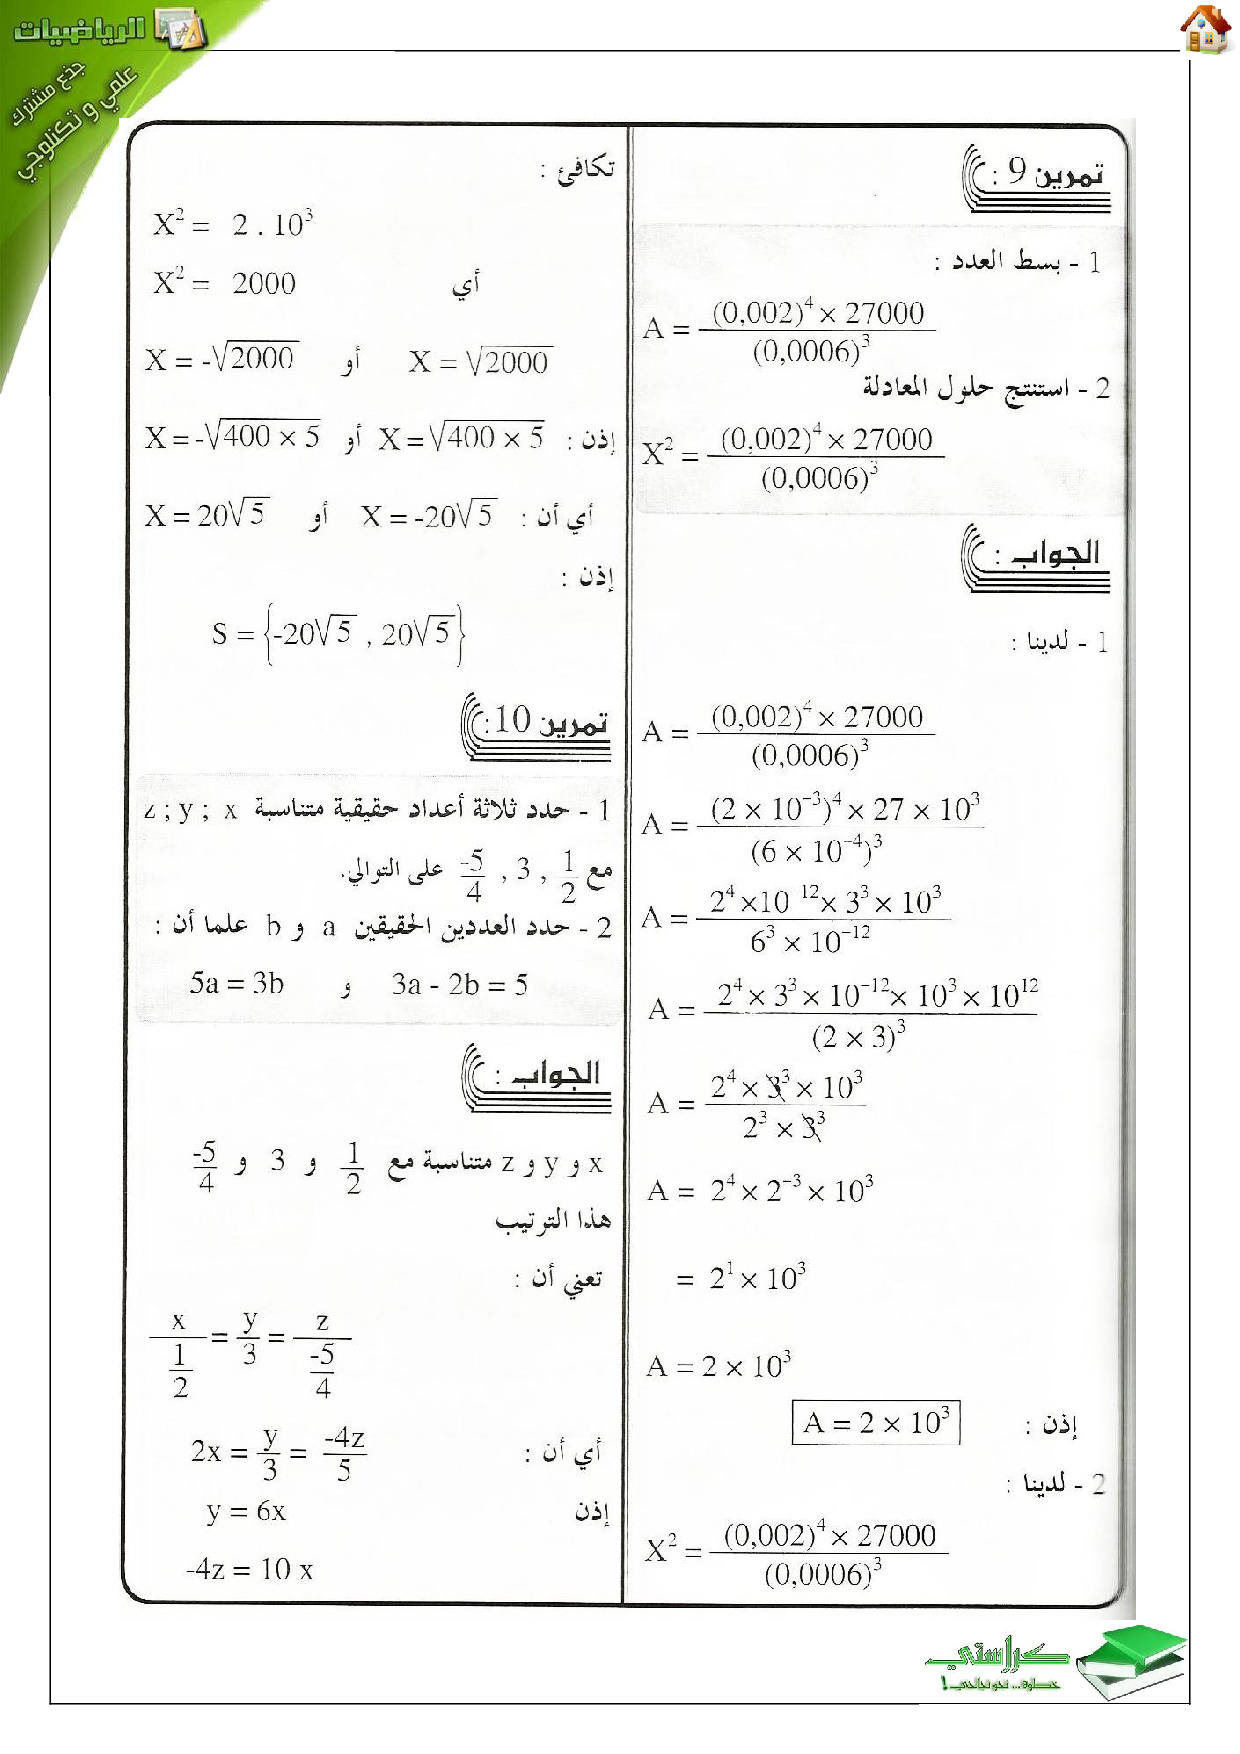 الرياضيات
جذع مشترك
علمي و تكنلوجي
تمرين 9 :
1 - بسط العدد :
A = \frac{(0,002)^4 × 27000}{(0,0006)^3}
2 - استنتج حلول المعادلة
X^2 = \frac{(0,002)^4 × 27000}{(0,0006)^3}
الجواب :
1 - لدينا :
A = \frac{(0,002)^4 × 27000}{(0,0006)^3}
A = \frac{(2 × 10^{-3})^4 × 27 × 10^3}{(6 × 10^{-4})^3}
A = \frac{2^4 ×10^{12} × 3^3 × 10^3}{6^3 × 10^{-12}}
A = \frac{2^4 × 3^3 × 10^{-12} × 10^3 × 10^{12}}{(2 × 3)^3}
A = \frac{2^4 × 3^3 × 10^3}{2^3 × 3^3}
A = 2^4 × 2^{-3} × 10^3
= 2^1 × 10^3
A = 2 × 10^3
إذن : A = 2 × 10^3
2 - لدينا :
X^2 = \frac{(0,002)^4 × 27000}{(0,0006)^3}
تكافئ :
X^2 = 2 . 10^3
أي X^2 = 2000
X = √2000 أو X = -√2000
إذن : X = √400 × 5 أو X = -√400 × 5
أي أن : X = -20√5 أو X = 20√5
إذن :
S = {-20√5 , 20√5}
تمرين 10 :
1 - حدد ثلاثة أعداد حقيقية متناسبة z ; y ; x
مع \frac{1}{2} , 3 , \frac{-5}{4} على التوالي.
2 - حدد العددين الحقيقين a و b علما أن :
3a - 2b = 5 و 5a = 3b
الجواب :
x و y و z متناسبة مع \frac{1}{2} و 3 و \frac{-5}{4}
هذا الترتيب
تعني أن :
\frac{x}{\frac{1}{2}} = \frac{y}{3} = \frac{z}{\frac{-5}{4}}
أي أن : 2x = \frac{y}{3} = \frac{-4z}{5}
إذن y = 6x
-4z = 10 x
كراستي
خطوة... نحو نجاحي !